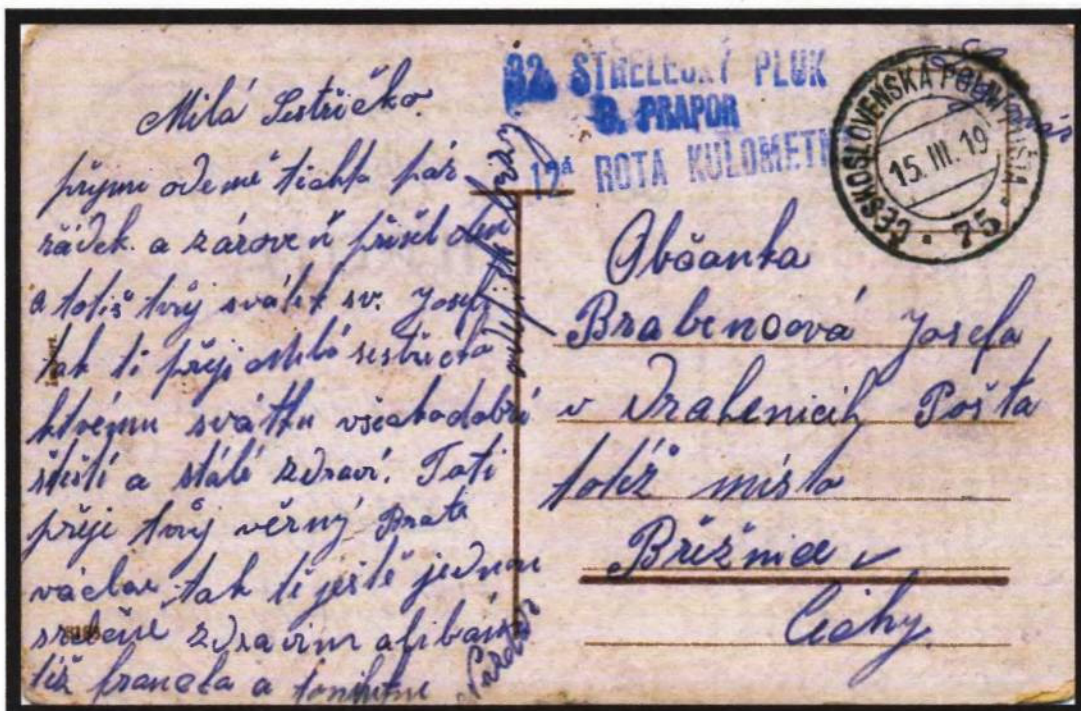 Milá Sestřičko.
přijmi odemě tichto pár
řádek. a zároveň přišel den
a totiš tvůj svátek sv. Josefa
tak ti přeji Milá sestřičko
ktvému svátku všechodobré
štěstí a stálé zdraví. Toti
přeje tvůj věrný Bratr
václav tak tě ještě jednou
srdečně zdravim alibám
též
a
32. STŘELECKÝ PLUK
3. PRAPOR
12á ROTA KULOMETN
ČESKOSLOVENSKÁ POLNÍ POŠTA
15. III. 19
75
Občanka
Brabencová Josefa
v Drahenicih Pošta
totéž místo
Březnice v
Čechy.
Nazdar